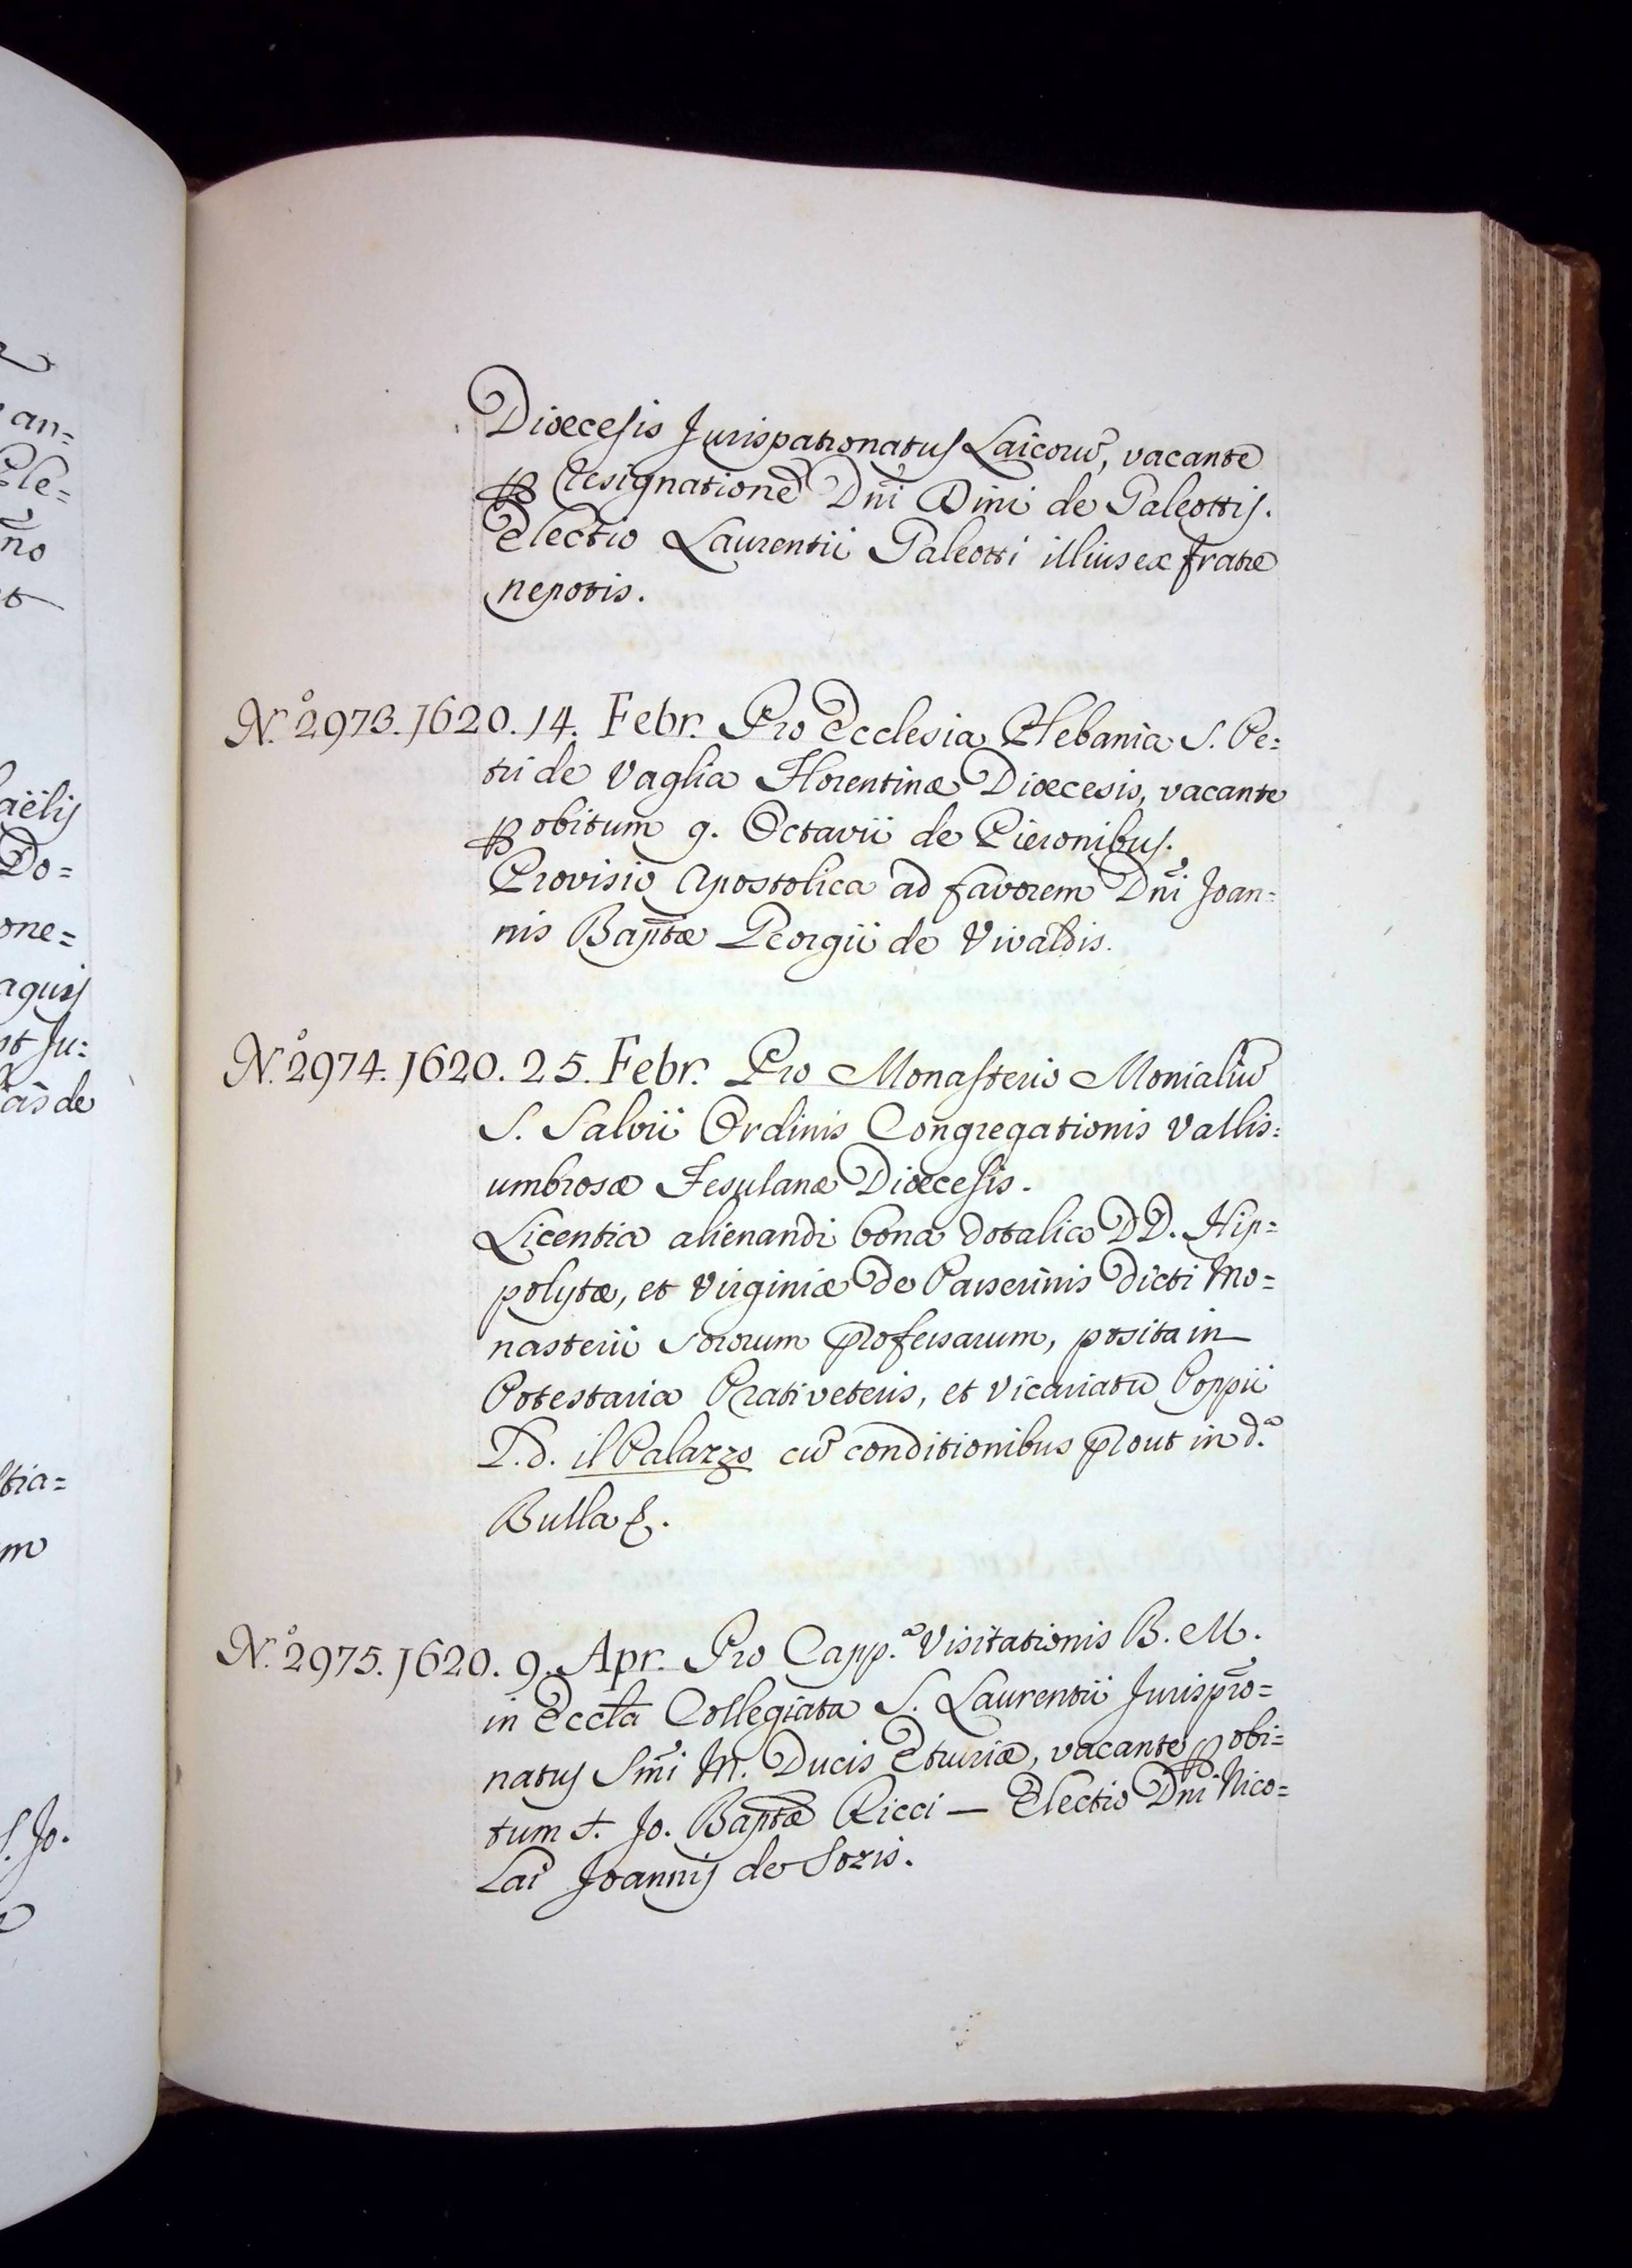 Diœcesis Jurispatronatus Laicorũ, vacante
ꝑ resignationẽ Dñi Dini de Galeottis.
Electio Laurentii Galeotti illius ex fratre
nepotis.
N.º 2973. 1620. 14. Febr. Pro Ecclesia Plebania S. Pe=
tri de Vaglia Florentinæ Diœcesis, vacante
ꝑ obitum q. Octavii de Pieronibus.
Provisio Apostolica ad favorem Dñi Joan=
nis Baptæ Georgii de Vivaldis.
N.º 2974. 1620. 25. Febr. Pro Monasterio Monialiũ
S. Salvii Ordinis Congregationis Vallis=
umbrosæ Fesulanæ Diœcesis.
Licentia alienandi bona dotalia DD. Hip=
polytæ, et Virginiæ de Passerinis dicti Mo=
nasterii Sororum professarum, posita in
Potestaria Prati veteris, et Vicariatu Poppii
L.d. il Palazzo cũ conditionibus prout in d.ª
Bulla &.
N.º 2975. 1620. 9. Apr. Pro Capp.ª Visitationis B. M.
in Eccla Collegiata S. Laurentii Jurisprõ=
natus Smi M. Ducis Etruriæ, vacante ꝑ obi=
tum S. Jo. Baptæ Ricci — Electio Dñi Nico=
lai Joannis de Sozis.
an=
no
aëlis
Do=
one=
agus
Ju:
às de
tia=
m
S. Jo.